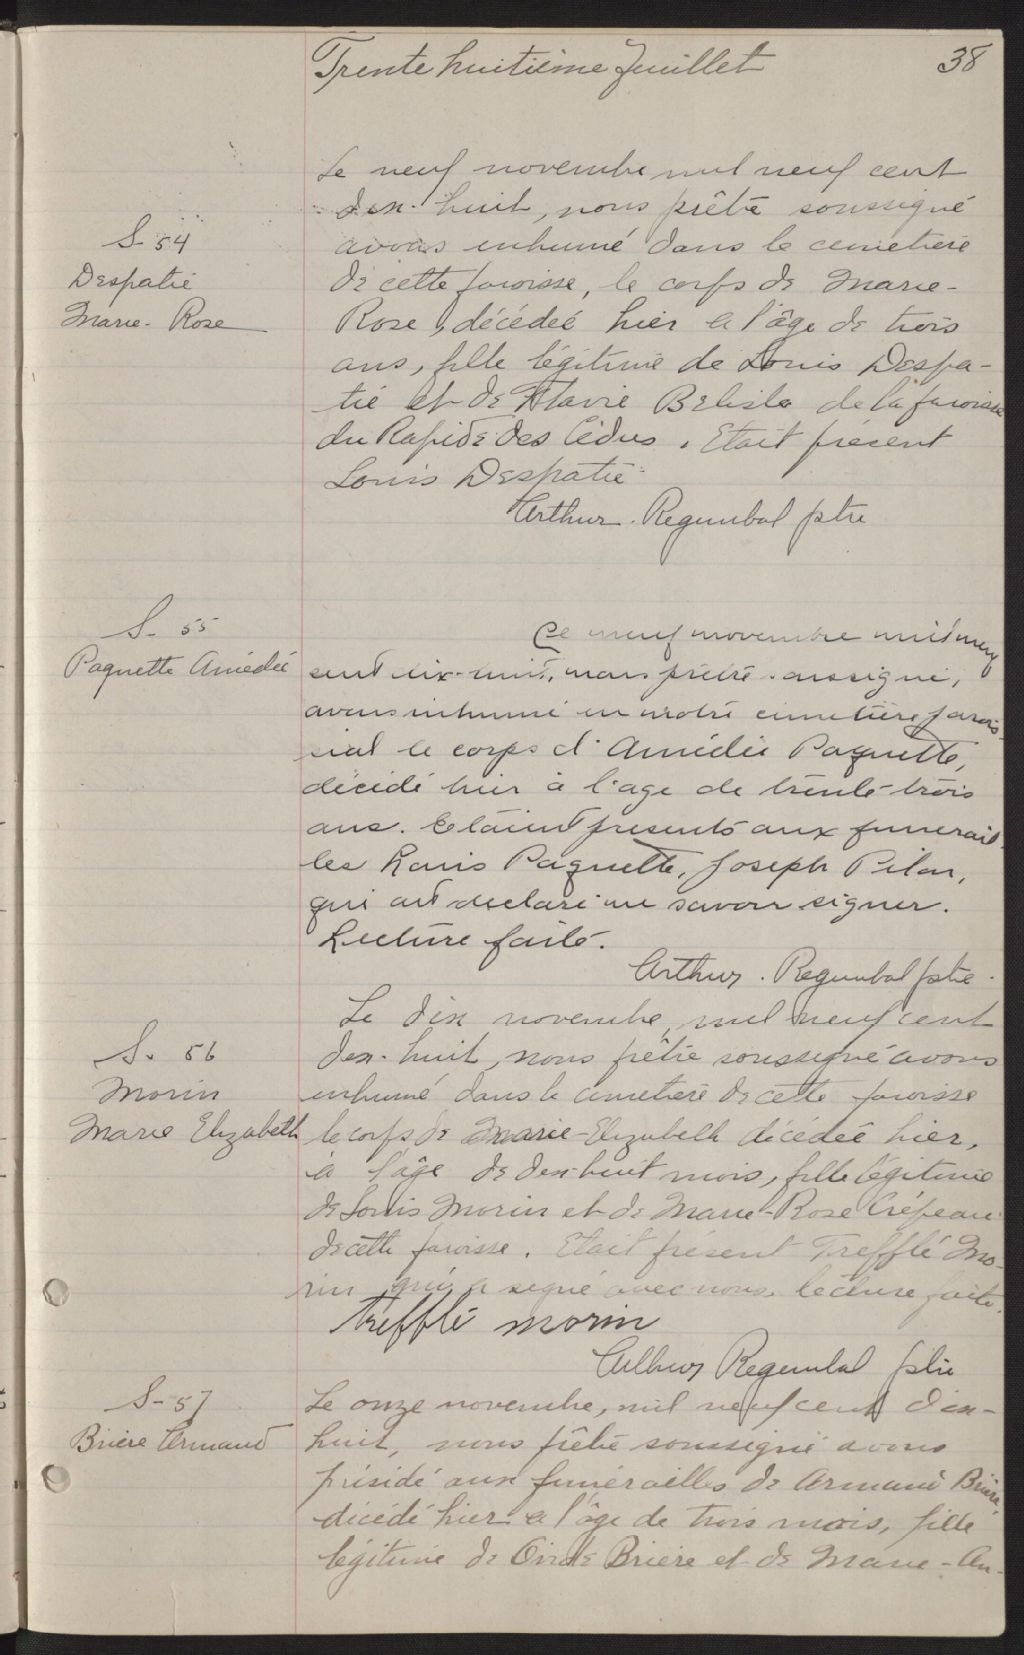 Trente huitième feuillet 38
S. 54
Despatie
Marie-Rose
Le neuf novembre mil neuf cent
dix-huit, nous prêtre soussigné
avons inhumé dans le cemetiere
de cette paroisse, le corps de Marie-
Rose, décédeé hier à l'âge de trois
ans, fille légitime de Louis Despa-
tié et de Flavie Belisle de la paroisse
du Rapide des Cèdres. Etait présent
Louis Despatie
Arthur. Regimbal ptre
S- 55
Paquette Amédée
Le neuf novembre mil neuf
cent dix-huit, nous prêtre soussigné,
avons inhumé en notre cimetière parois-
sial le corps d'Amédée Paquette,
décédé hier à l'age de trente-trois
ans. Etaient presents aux funerail-
les Louis Paquette, Joseph Pilon,
qui ont declaré ne savoir signer.
Lecture faite.
Arthur. Regimbal ptre.
S. 56
Morin
Marie Elizabeth
Le dix novembre, mil neuf cent
dix-huit, nous prêtre soussigné avons
inhumé dans le cimetiere de cette paroisse
le corps de Marie-Elizabeth décédeé hier,
à l'âge de dix-huit mois, fille légitime
de Louis Morin et de Marie-Rose Crépeau
de cette paroisse. Etait présent Trefflé Mo-
rin qui a signé avec nous. lecture faite.
Trefflé Morin
Arthur Regimbal ptre
S-57
Briere Armand
Le onze novembre, mil neuf cent dix-
huit, nous prêtre soussigné avons
présidé aux funérailles de Armand Briere,
décédé hier à l'âge de trois mois, fille
légitime de Briere et de Marie-An-